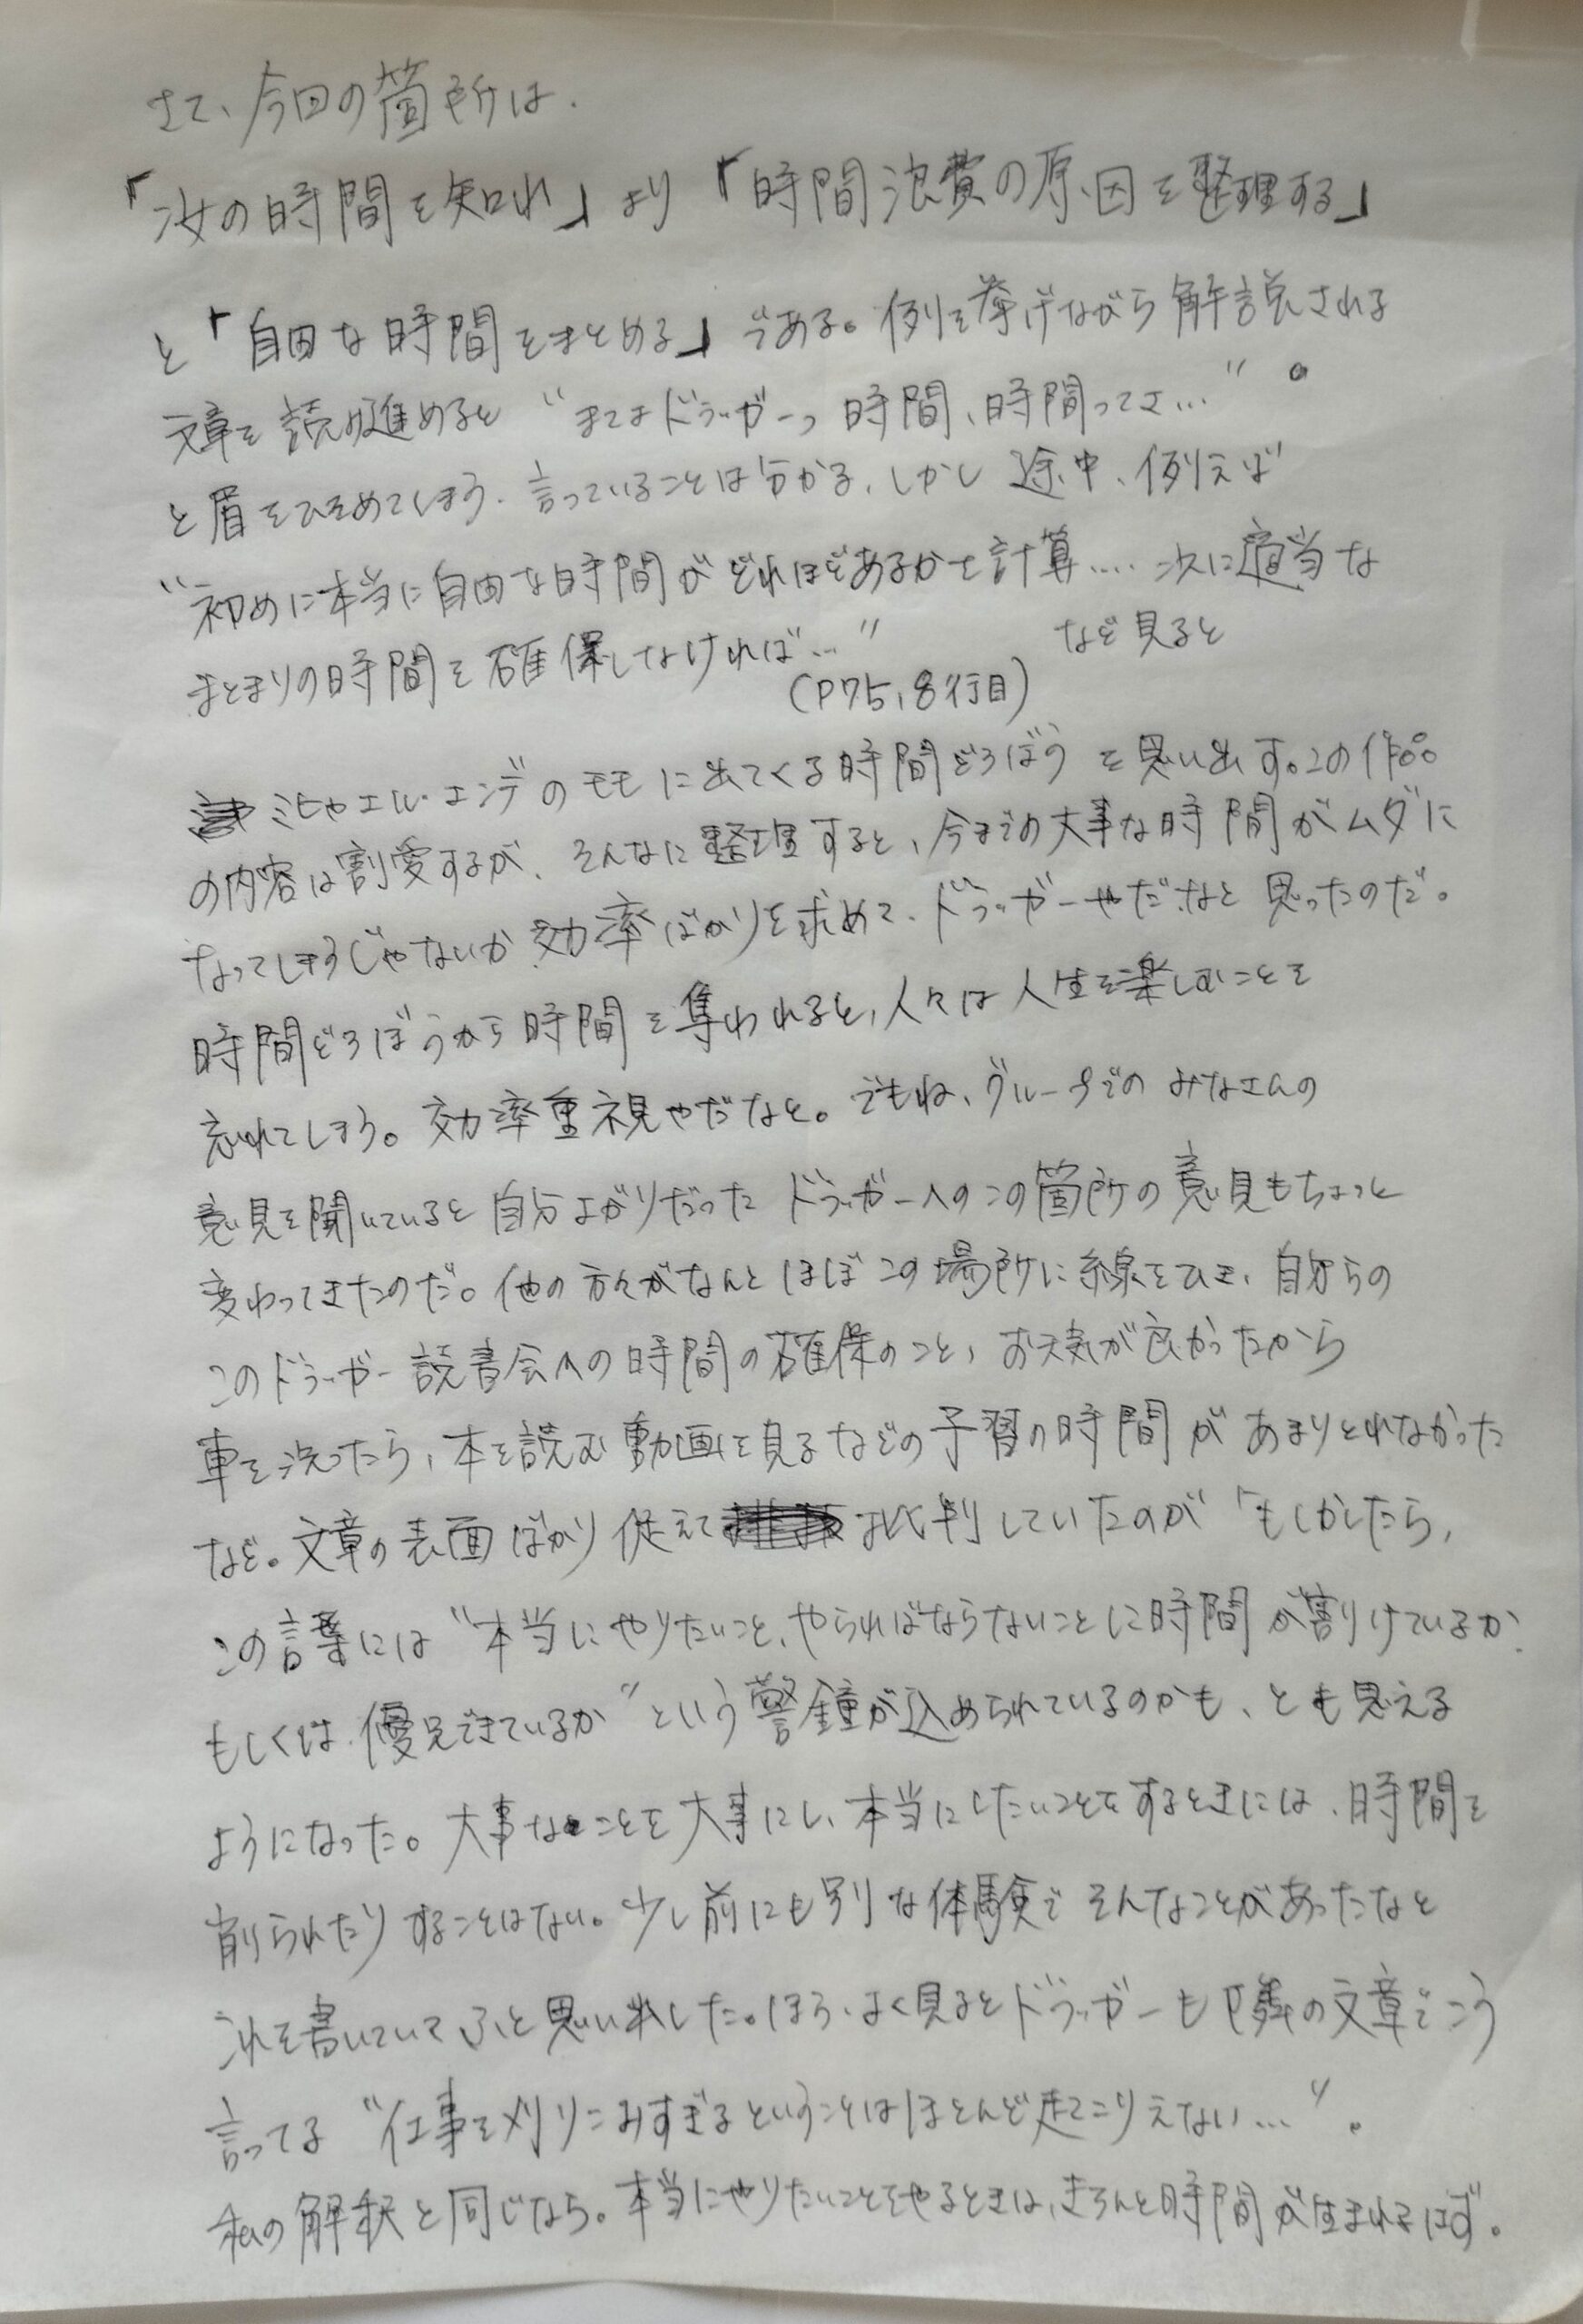 さて、今回の箇所は.
「汝の時間を知れ」より「時間浪費の原因を整理する」
と「自由な時間をまとめる」である。例を挙げながら解説される
文章を読み進めると “まてよドラッガーっ 時間、時間ってさ…”。
と眉をひそめてしまう. 言っていることは分かる、しかし 途中、例えば
“初めに本当に自由な時間がどれほどあるかを計算‥‥次に適当な
まとまりの時間を確保しなければ…” など見ると
(P75, 8行目)
ミヒャエル・エンデのモモに出てくる時間どろぼうを思い出す。この作品
の内容は割愛するが、そんなに整理すると、今までの大事な時間がムダに
なってしまうじゃないか 効率ばかりを求めて、ドラッガーやだなと思ったのだ。
時間どろぼうから時間を奪われると、人々は人生を楽しむことを
忘れてしまう。効率重視やだなと。でもね、グループでのみなさんの
意見を聞いていると自分よがりだった ドラッガーへのこの箇所の意見もちょっと
変わってきたのだ。他の方々がなんとほぼこの場所に線をひき、自分らの
このドラッガー読書会への時間の確保のこと、お天気が良かったから
車を洗ったら、本を読む動画を見るなどの予習の時間があまりとれなかった
など。文章の表面ばかり捉えて 批判していたのが「もしかしたら,
この言葉には “本当にやりたいこと、やらればならないことに時間が割けているか、
もしくは、優先できているか” という警鐘が込められているのかも、とも思える
ようになった。大事なことを大事にし、本当にしたいことをするときには、時間を
削られたりすることはない。少し前にも別な体験でそんなことがあったなと
これを書いていてふと思い出した。ほう、よく見るとドラッガーも隣の文章でこう
言ってる “仕事を刈りこみすぎるということはほとんど起こりえない…”。
私の解釈と同じなら。本当にやりたいことをやるときは、きちんと時間が生まれるはず。